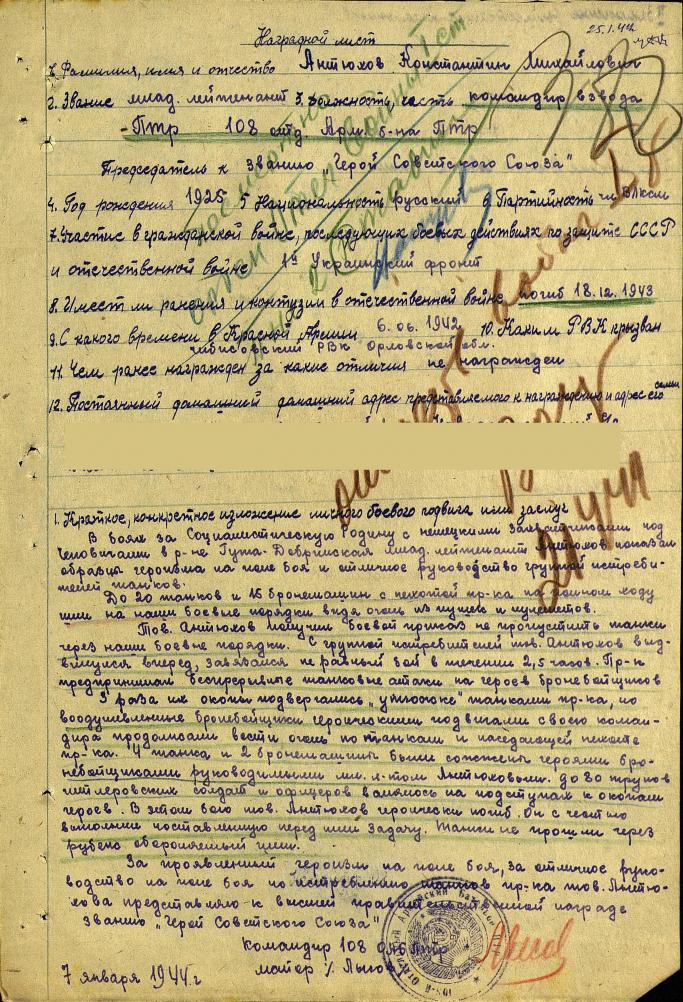 25.1.44
Наградной лист
1. Фамилия, имя и отчество Антюхов Константин Михайлович
2. Звание млад. лейтенант 3. должность, часть командир взвода
-Птр 108 отд. Арм. б-на Птр
Председатель к званию „Герой Советского Союза"
4. Год рождения 1925 5 Национальность русский 6 Партийность чл ВЛКСМ
7. Участие в гражданской войне, последующих боевых действиях по защите СССР
и отечественной войне 1й Украинский фронт
8. Имеет ли ранения и контузии в отечественной войне погиб 18.12.1943
9. С какого времени в Красной Армии 6.06.1942 10. Каким РВК призван
Чибисовский РВК Орловской обл.
11. Чем ранее награжден за какие отличия не награжден
12. Постоянный домашний домашний адрес представляемого к награждению и адрес его семьи
1. Краткое, конкретное изложение личного боевого подвига или заслуг
В боях за Социалистическую Родину с немецкими захватчиками под
Чеповичами в р-не Гута-Добринская млад. лейтенант Антюхов показал
образцы героизма на поле боя и отличное руководство группой истреби-
телей танков.
До 20 танков и 15 бронемашин с пехотой пр-ка на полном ходу
шли на наши боевые порядки ведя огонь из пушек и пулеметов.
Тов. Антюхов получил боевой приказ не пропустить танки
через наши боевые порядки. С группой истребителей тов. Антюхов выд-
винулся вперед, завязался неравный бой в течении 2,5 часов. Пр-к
предпринимал беспрерывные танковые атаки на героев бронебойщиков
3 раза их окопы подвергались „утюжке" танками пр-ка, но
воодушевленные бронебойщики героическими подвигами своего коман-
дира продолжали вести огонь по танкам и наседающей пехоте
пр-ка. 4 танка и 2 бронемашины были сожжены героями бро-
небойщиками руководимыми мл. л-том Антюховым. до 80 трупов
гитлеровских солдат и офицеров валялось на подступах к окопам
героев. В этом бою тов. Антюхов героически погиб. Он с честью
выполнил поставленную перед ним задачу. Танки не прошли через
рубеж обороняемый ими.
За проявленный героизм на поле боя, за отличное руко-
водство на поле боя по истреблению танков пр-ка тов. Антю-
хова представляю к высшей правительственной награде
званию „Герой Советского Союза"
Командир 108 ОАБ Птр
майор
7 января 1944 г